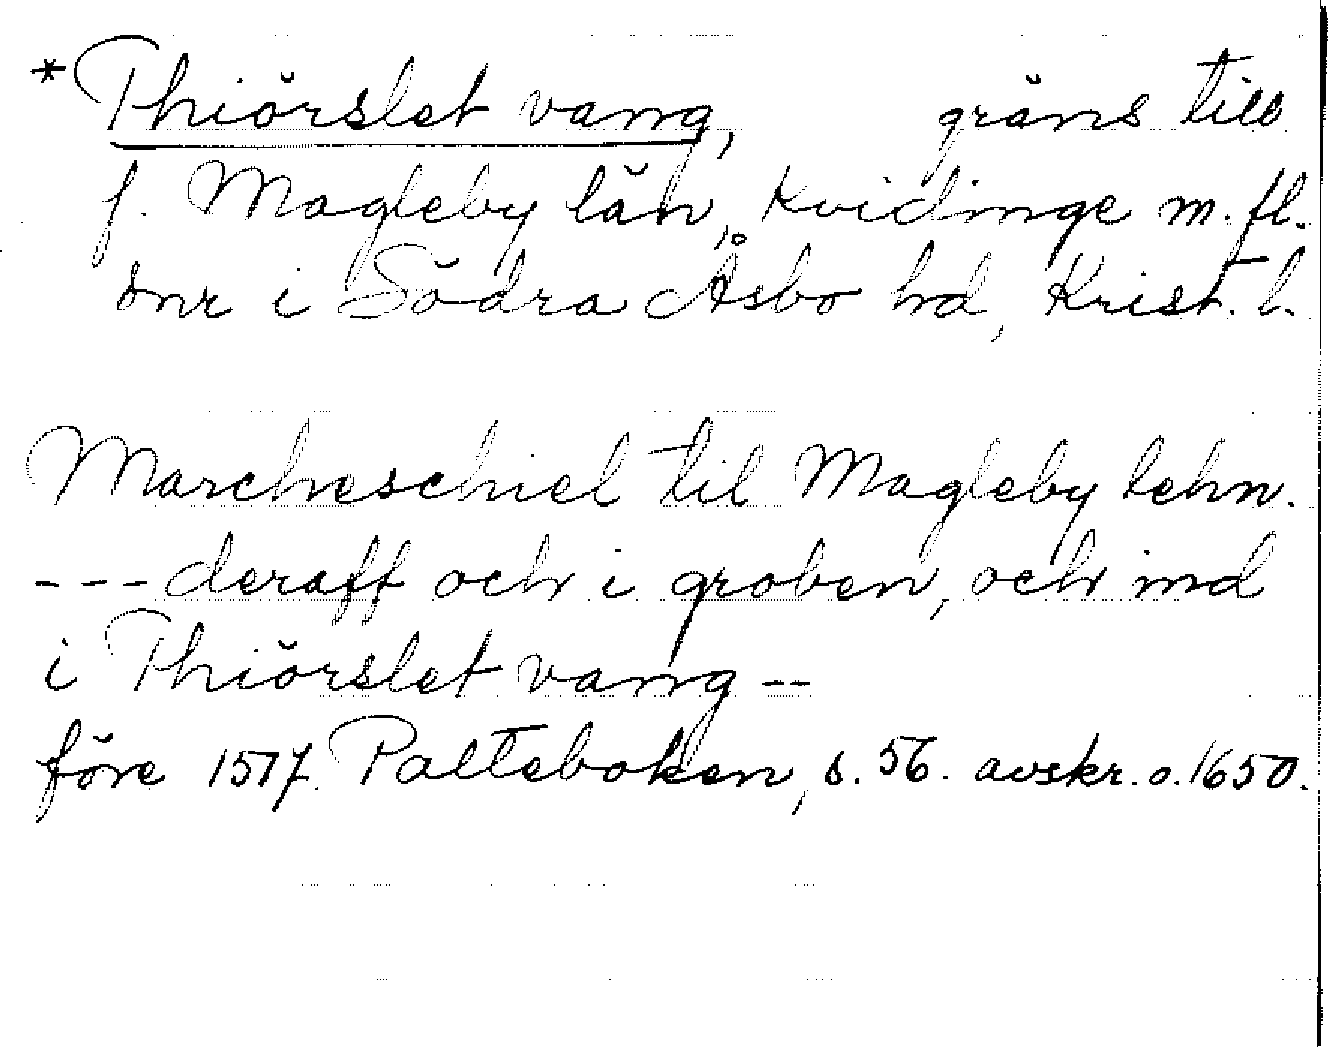 *Thiörslet vang, gräns till
f. Magleby län, Kvidinge m.fl.
snr i Södra Åsbo hd, Krist. l.
Marcheschiel til Magleby lehn.
--- deraff och i groben, och ind
i Thiörslet vang --
före 1517. Palteboken, s. 56. avskr. o. 1650.